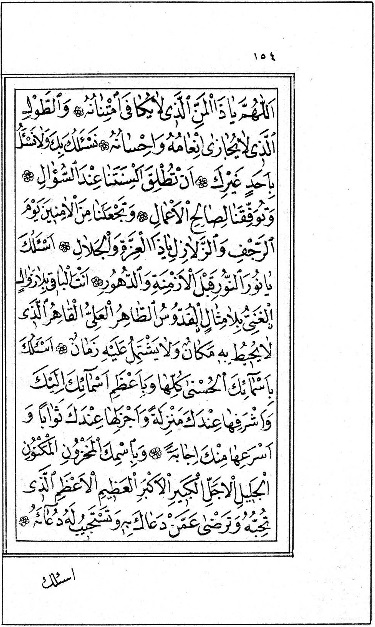 ١٥٤
اَللّٰهُمَّ يَا ذَا الْمَنِّ الَّذٖى لَا يُكَافٰى اِمْتِنَانُهُ ❁ وَالطَّوْلِ
الَّذٖى لَا يُجَازٰى اِنْعَامُهُ وَاِحْسَانُهُ ❁ نَسْئَلُكَ بِكَ وَلَا نَسْئَلُ
بِاَحَدٍ غَيْرِكَ ❁ اَنْ تُطْلِقَ اَلْسِنَتَنَا عِنْدَ السُّؤَالِ ❁
وَتُوَفِّقَنَا لِصَالِحِ الْاَعْمَالِ ❁ وَتَجْعَلَنَا مِنَ الْاٰمِنٖينَ يَوْمَ
الرَّجْفِ وَالزَّلَازِلِ يَا ذَا الْعِزَّةِ وَالْجَلَالِ ❁ اَسْئَلُكَ
يَا نُورَ النُّورِ قَبْلَ الْاَزْمِنَةِ وَالدُّهُورِ ❁ اَنْتَ الْبَاقٖى بِلَا زَوَالٍ
الْغَنِىُّ بِلَا مِثَالٍ الْقُدُّوسُ الطَّاهِرُ الْعَلِىُّ الْقَاهِرُ الَّذٖى
لَا يُحٖيطُ بِهِ مَكَانٌ وَلَا يَشْتَمِلُ عَلَيْهِ زَمَانٌ ❁ اَسْئَلُكَ
بِاَسْمَائِكَ الْحُسْنٰى كُلِّهَا وَبِاَعْظَمِ اَسْمَائِكَ اِلَيْكَ
وَاَشْرَفِهَا عِنْدَكَ مَنْزِلَةً وَاَجْزَلِهَا عِنْدَكَ ثَوَابًا وَ
اَسْرَعِهَا مِنْكَ اِجَابَةً ❁ وَبِاسْمِكَ الْمَخْزُونِ الْمَكْنُونِ
الْجَلٖيلِ الْاَجَلِّ الْكَبٖيرِ الْاَكْبَرِ الْعَظٖيمِ الْاَعْظَمِ الَّذٖى
تُحِبُّهُ وَتَرْضٰى عَمَّنْ دَعَاكَ بِهِ وَتَسْتَجٖيبُ لَهُ دُعَائَهُ ❁
اسئلك